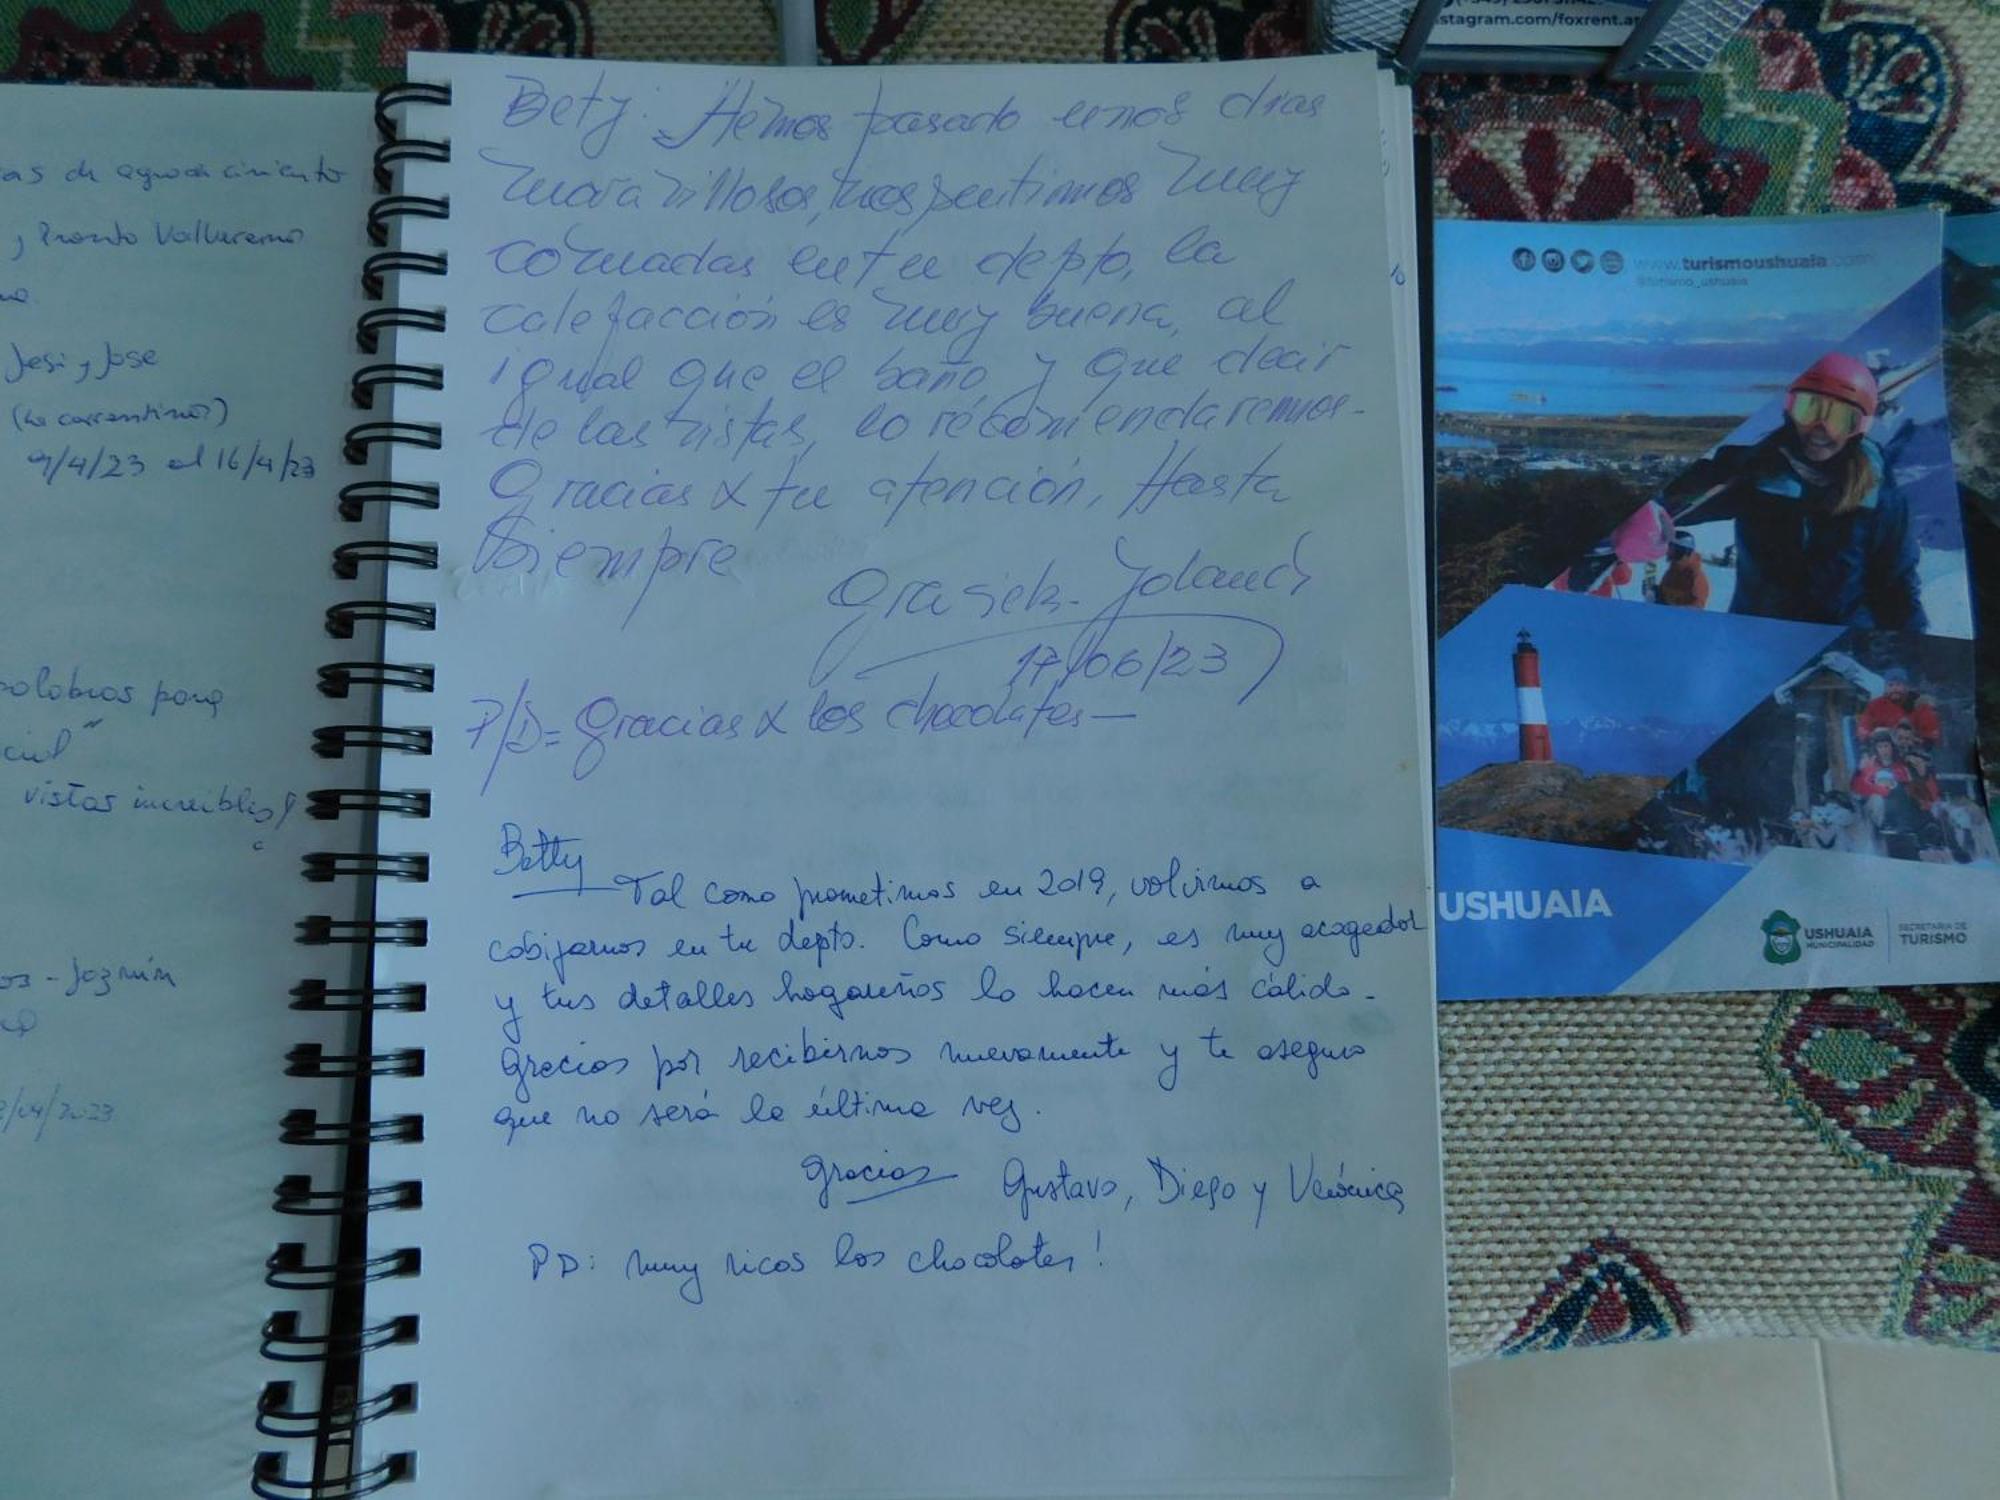 stagram.com/foxrent.ar
as de agradecimiento
, Pronto Volveremos
Jesi y Jose
(Los correntinos)
9/4/23 al 16/4/23
palabras para
cial"
vistas increíbles!
os - Jazmín
/04/2023
Bety: Hemos pasado unos dias
maravillosos, nos sentimos muy
cómodas en tu depto, la
calefacción es muy buena, al
igual que el baño y que decir
de las vistas, lo recomendaremos.
Gracias x tu atención, Hasta
Siempre
Yolanda
17/06/23
P/D= Gracias x los chocolates—
Betty
Tal como prometimos en 2019, volvimos a
cobijarnos en tu depto. Como siempre, es muy acogedor
y tus detalles hogareños lo hacen más cálido.
Gracias por recibirnos nuevamente y te aseguro
que no será la última vez.
gracias Gustavo, Diego y Verónica
PD: muy ricos los chocolates!
www.turismoushuaia.com
@turismo_ushuaia
USHUAIA
USHUAIA
MUNICIPALIDAD
SECRETARIA DE
TURISMO